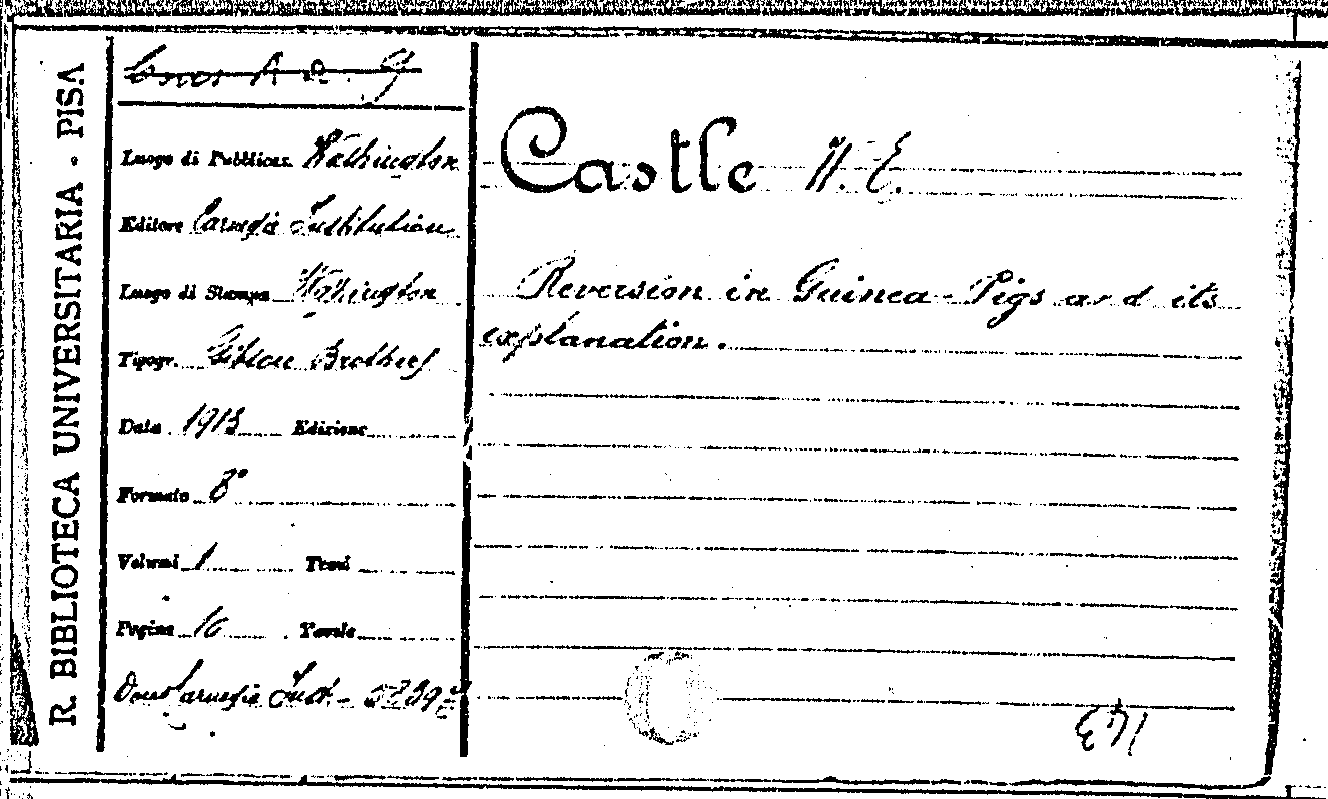 R. BIBLIOTECA UNIVERSITARIA - PISA
Luogo di Pubblicaz. Wathington
Editore Carnegie Institution
Luogo di Stampa Wathington
Tipogr. Gibson Brothers
Data 1913 Edizione
Formato 8°
Volumi 1 Tomi
Pagine 10 Tavole
Dono Carnegie Inst.-
Castle W. E.
Reversion in Guinea-Pigs and its
explanation.
143